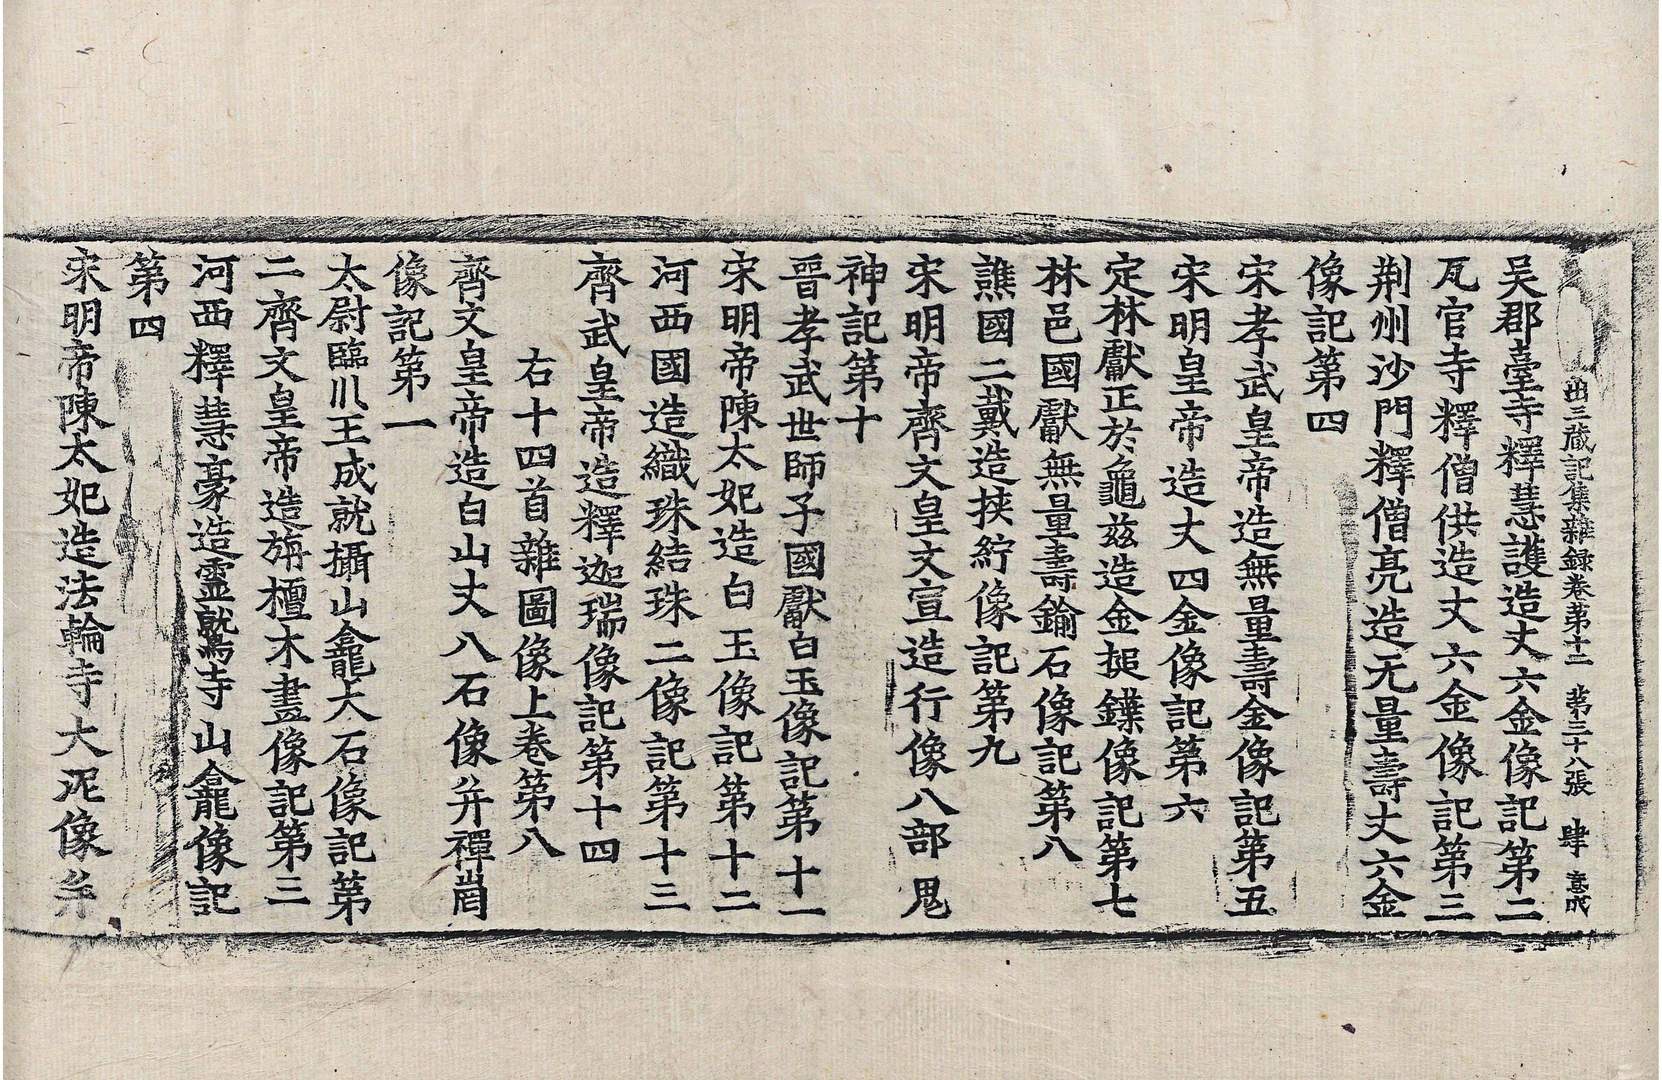 出三藏記集雜錄卷第十二 第三十八張 肆 意戌
吴郡臺寺釋慧護造丈六金像記第二
瓦官寺釋僧供造丈六金像記第三
荆州沙門釋僧亮造无量壽丈六金
像記第四
宋孝武皇帝造無量壽金像記第五
宋明皇帝造丈四金像記第六
定林獻正於龜兹造金搥鍱像記第七
林邑國獻無量壽鍮石像記第八
譙國二戴造挾紵像記第九
宋明帝齊文皇文宣造行像八部鬼
神記第十
晉孝武世師子國獻白玉像記第十一
宋明帝陳太妃造白玉像記第十二
河西國造織珠結珠二像記第十三
齊武皇帝造釋迦瑞像記第十四
右十四首雜圖像上卷第八
齊文皇帝造白山丈八石像并禪崗
像記第一
太尉臨川王成就攝山龕大石像記第
二齊文皇帝造旃檀木畫像記第三
河西釋慧豪造靈鷲寺山龕像記
第四
宋明帝陳太妃造法輪寺大泥像并